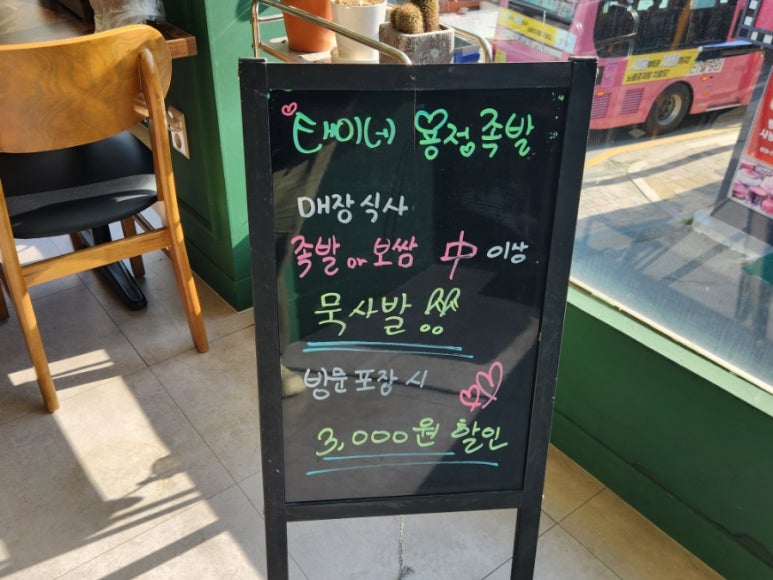 태이네 용정족발
매장 식사
족발 or 보쌈 中 이상
묵사발
방문 포장 시
3,000원 할인